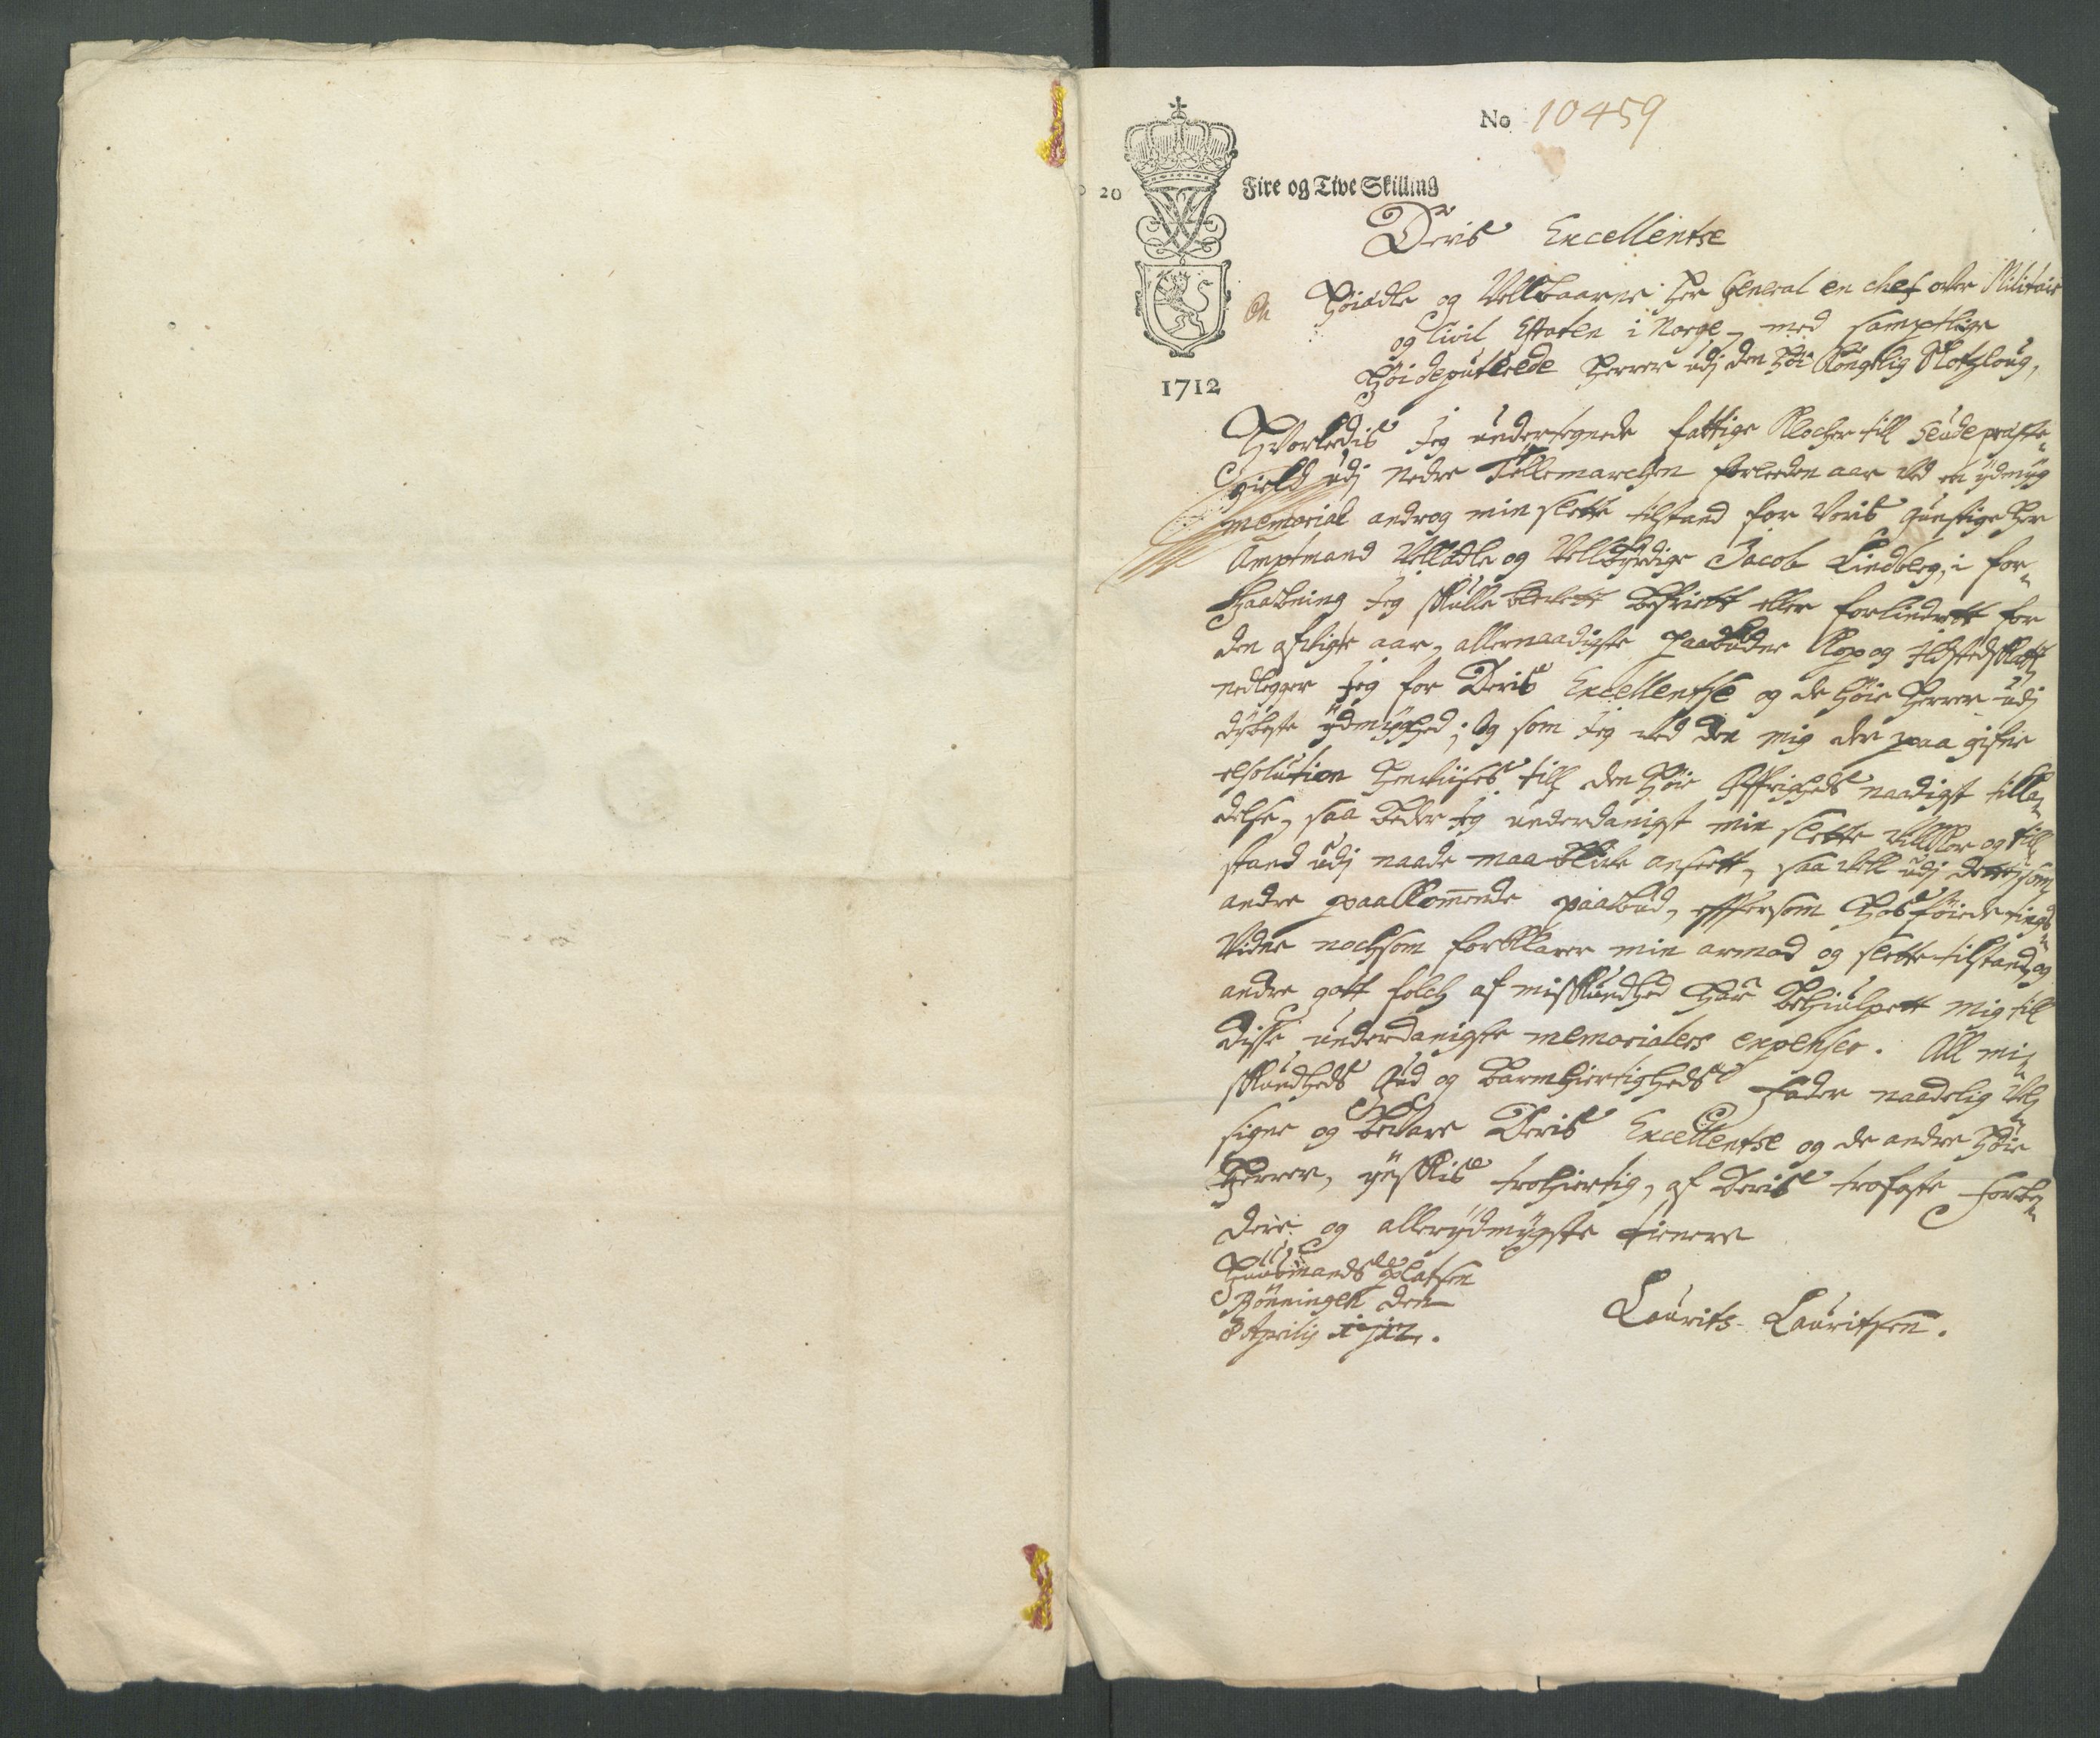 No 10459
20 Fire og Tive Skilling
Deris Excellentse
Høiædle og Vellbaarne Her General en chef over Militair
og Civil Estaten i Norge, med samptlige
Høideputerede Herrer udj den Høi Kongelig Slotzloug,
1712
Hvorledis Jeg undertegnede fattige Klocher till Seude præste-
gield udj Nedre Tellemarchen forleeden aar ved en ydmyg
memorial androg min slette tilstand for Voris Gunstige Her
Amptmand Vellædle og Vellbyrdige Jacob Lindbeg, i for-
Haabning Jeg skulle blevett befriett eller forlindrett for
den afvigte aar, allernaadigste paabudne Kop og Ildstedskatt
nedlegger Jeg for Deris Excellentse og de høie Herrer udj
dybeste ydmyghed; Og som Jeg ved den mig der paa gifne
resolution Henviises till den Høie Øfrigheds naadigst tilla-
delse, saa beder Jeg underdanigst min slette Villkor og till
stand udj naade maa blive anseett, saa vell udj dette som
andre paakommende paabud, effersom Hosføiede tings
Vidne nochsom forklarer min armod og slette tilstand, og
andre gott folch af miskundhed Har behiulpett mig till
disse underdanigste memorialers expenser. All mi-
skundheds Gud og barmhiertigheds Fader naadelig vel-
signe og bevare Deris Excellentse og de andre Høie
Herrer, ynskis trohiertig, af Deris trofaste forbe-
dere og allerydmygste tienere
Huusmands platsen
Bønningen den
8 Aprilis 1712.
Laurits Lauritsen.